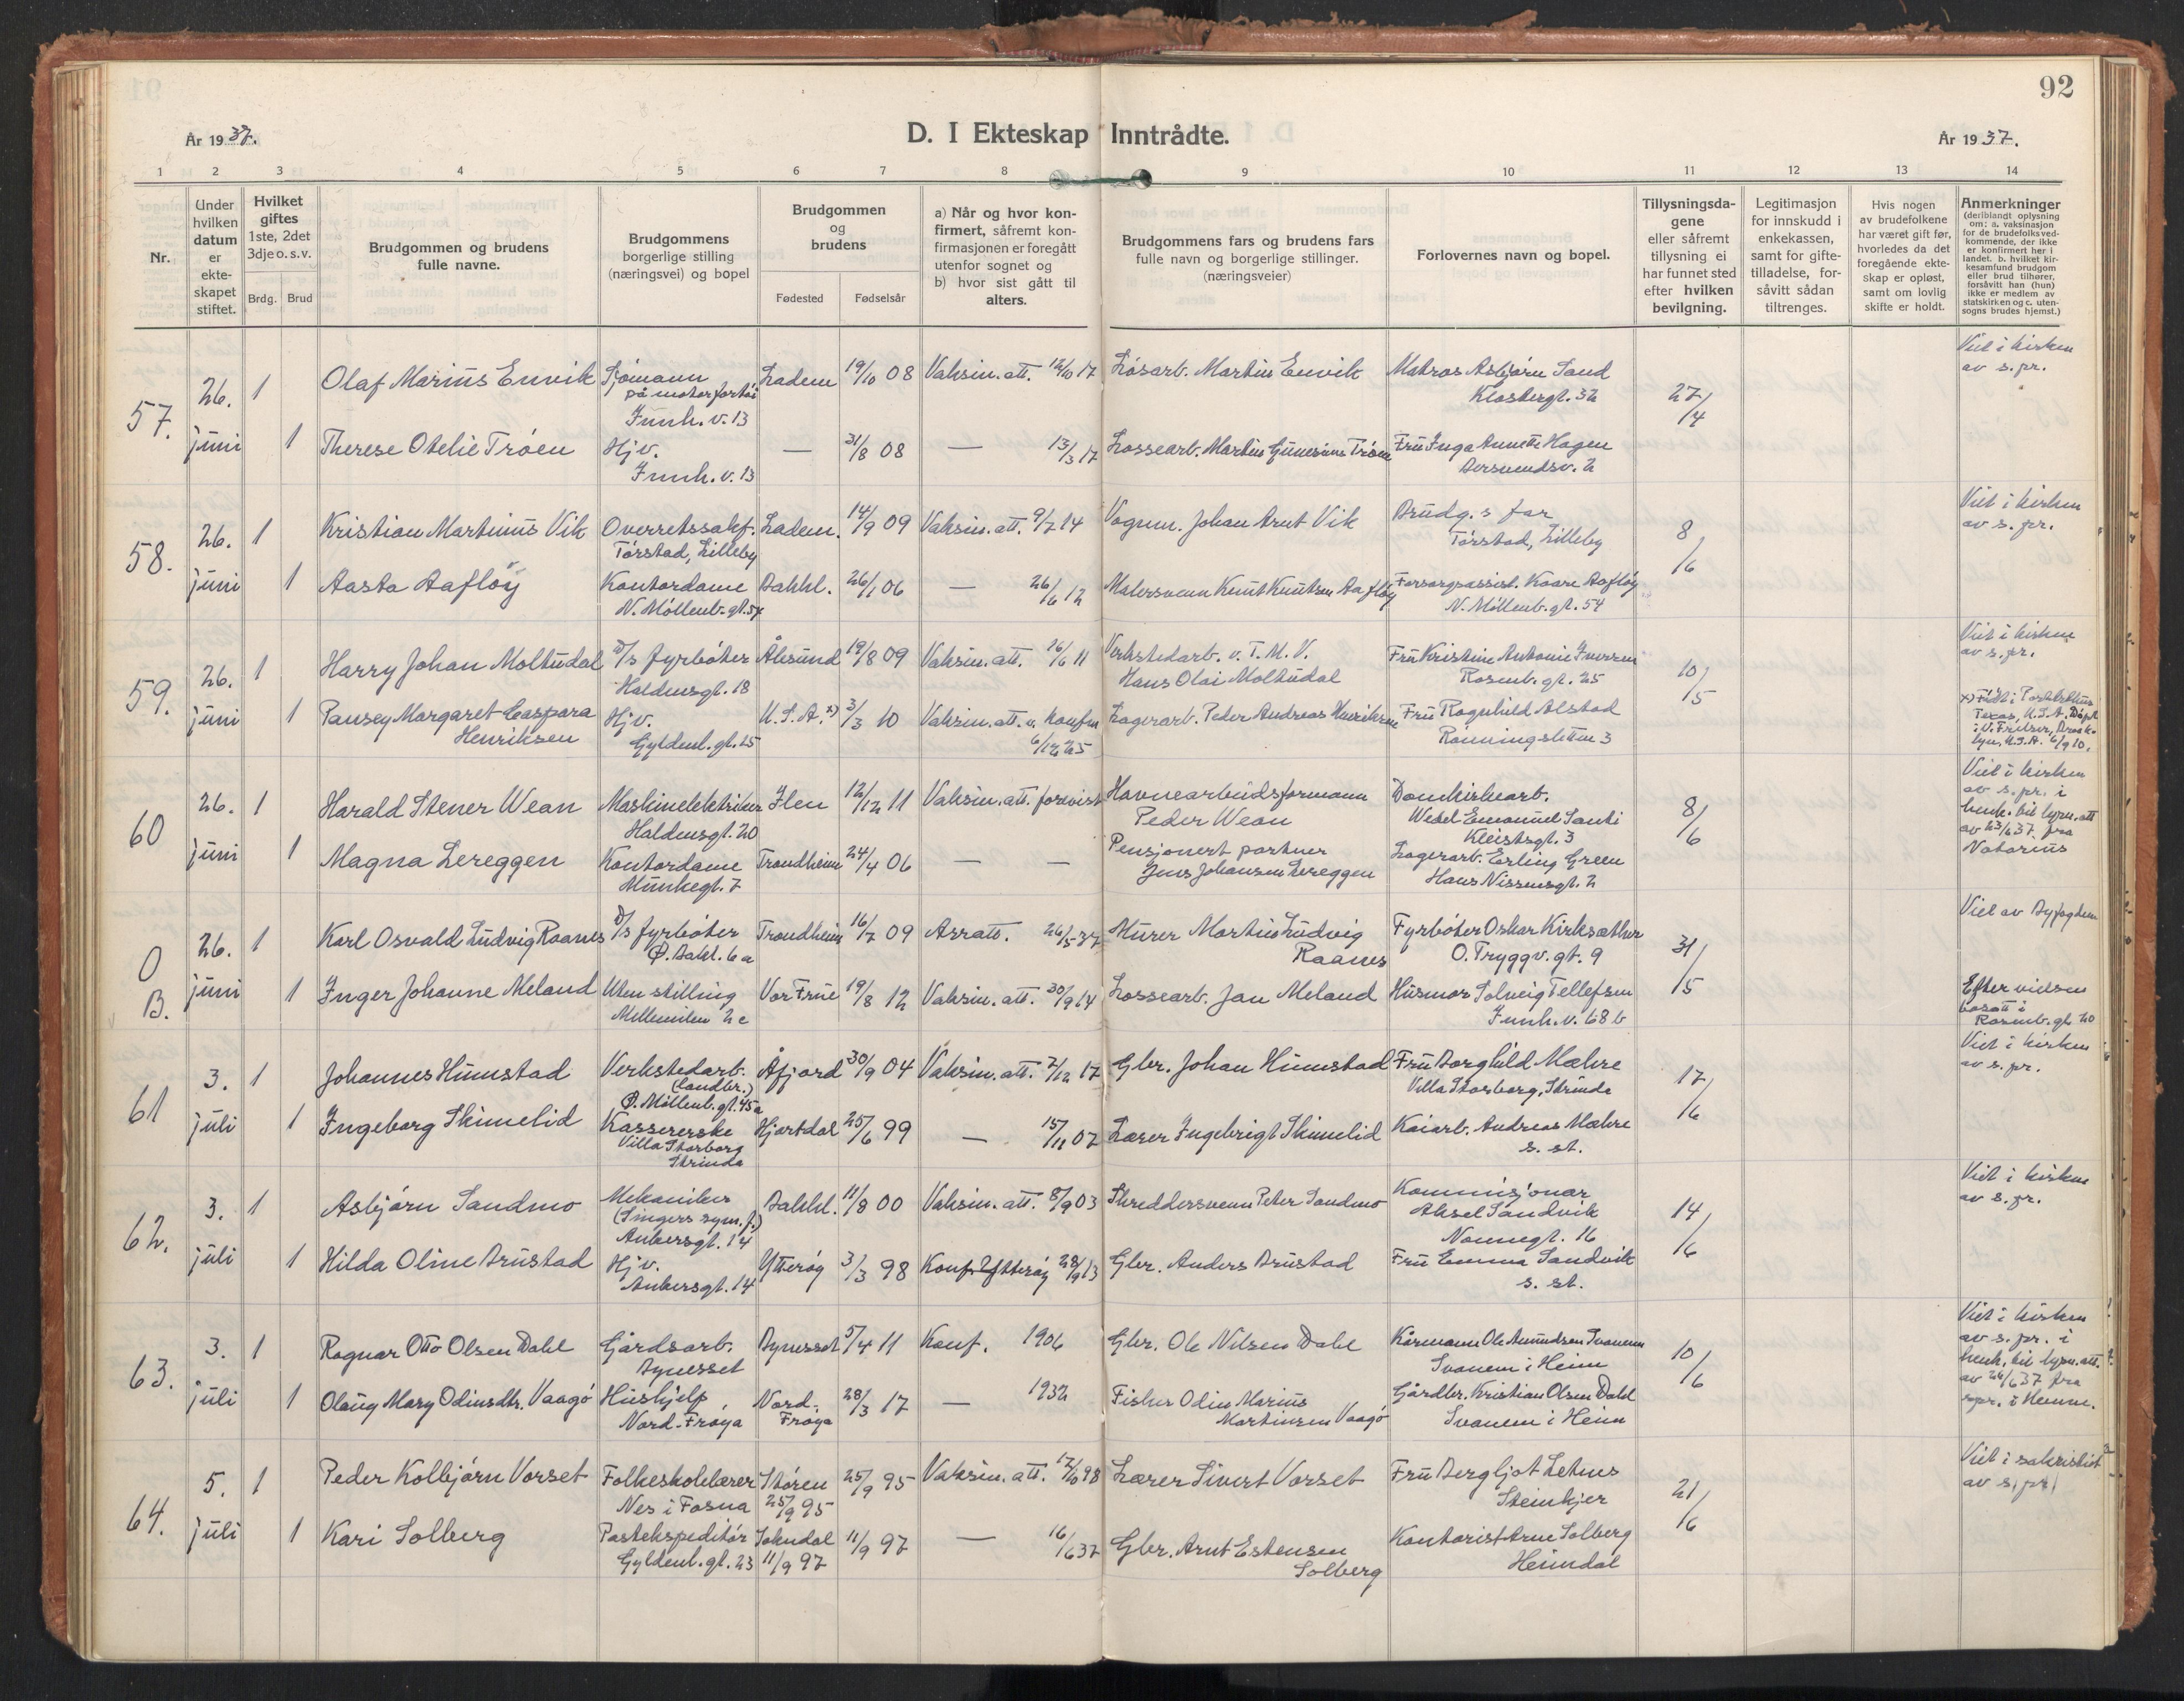 92
År 1937.
D. I Ekteskap Inntrådte.
År 1937.
1 2 3 4 5 6 7 8 9 10 11 12 13 14
Nr.
Under hvilken datum er ekte-skapet stiftet.
Hvilket giftes 1ste, 2det 3dje o.s.v.
Brdg. Brud
Brudgommen og brudens fulle navne.
Brudgommens borgerlige stilling (næringsvei) og bopel
Brudgommen og brudens
Fødested Fødselsår
a) Når og hvor kon-firmert, såfremt kon-firmasjonen er foregått utenfor sognet og b) hvor sist gått til alters.
Brudgommens fars og brudens fars fulle navn og borgerlige stillinger. (næringsveier)
Forlovernes navn og bopel.
Tillysningsda-gene eller såfremt tillysning ei har funnet sted efter hvilken bevilgning.
Legitimasjon for innskudd i enkekassen, samt for gifte-tilladelse, for-såvitt sådan tiltrenges.
Hvis nogen av brudefolkene har været gift før, hvorledes da det foregående ekte-skap er opløst, samt om lovlig skifte er holdt.
Anmerkninger (deriblandt oplysning om: a. vaksinasjon for de brudefolks ved-kommende, der ikke er konfirmert her i landet. b. hvilket kir-kesamfund brudgom eller brud tilhører, forsåvitt han (hun) ikke er medlem av statskirken og c. uten-sogns brudes hjemst.)
57. 26. juni 1 Olaf Marius Envik Sjømann på motorfartøi Innh. v. 13 Ladem 19/10 08 Vaksin. att. 12/10 17 Løsarb. Martin Envik Matros Asbjørn Sand Klostergt. 32 27/4 Viet i kirken av s.pr.
1 Therese Otelie Trøen Hjv. Innh. v. 13 — 31/8 08 — 13/3 17 Lossearb. Martin Trøen Fru Inga Annette Hagen
58. 26. juni 1 Kristian Martinus Vik Overretssakf. Tørstad, Lilleby Ladem. 14/9 09 Vaksin. att. 9/7 14 Vognm. Johan Arnt Vik Brudg.s far Tørstad, Lilleby 8/6 Viet i kirken av s.pr.
1 Aasta Aafløy Kontordame N. Møllenb. gt. 54 Bakkl. 26/1 06 — 26/6 12 Malersvenn Knut Knutsen Aafløy Forsorgsassist. Kaare Aafløy N. Møllenb. gt. 54
59. 26. juni 1 Harry Johan Moltudal D/s fyrbøter Haldensgt. 18 Ålesund 19/8 09 Vaksin. att. 16/6 11 Verkstedarb. v. T. M. V. Hans Olai Moltudal Fru Kristine Antonie Iversen Rosenb. gt. 25 10/5 Viet i kirken av s.pr.
1 Pansey Margaret Caspara Henriksen Hjv. Gyldenl. gt. 25 U.S.A. x) 3/3 10 Vaksin. att. u. konfm 6/12 25 Lagerarb. Peder Andreas Henriksen Fru Ragnhild Alstad Rønningsletten 3
60 26. juni 1 Harald Stener Wean Maskinelektriker Haldensgt. 20 Ilen 12/12 11 Vaksin. att. forevist Havnearbeidsformann Peder Wean Domkirkearb. Wedel Emanuel Santi Kleistsgt. 3 8/6 Viet i kirken av s.pr. i henh. til lysn. att av 23/6 37 fra Notarius
1 Magna Lereggen Kontordame Munkegt. 7 Trondheim 24/4 06 — — Pensjonert portner Jens Johansen Lereggen Lagerarb. Erling Green Hans Nissensgt. 2
0 B. 26. juni 1 Karl Osvald Ludvig Raanes D/s fyrbøter Ø. Bakl. 6 a Trondheim 16/7 09 26/5 37 Murer Martin Ludvig Raanes Fyrbøter Oskar Kirksæther O. Tryggv. gt. 9 31/5 Viet av Byfogden
1 Inger Johanne Meland Uten stilling Mellemilen 2 c Vor Frue 19/8 12 Vaksin. att. 30/9 14 Lossearb. Jan Meland Husmor Solveig Tellefsen Innh. v. 68 b Efter vielsen bosatt i Rosenb. gt 20
61 3. juli 1 Johannes Humstad Verkstedarb. (landbr.) Ø. Møllenb. gt. 45a Åfjord 30/9 04 Vaksin. att. 7/12 17 Gbr. Johan Humstad Fru Borghild Mæhre Villa Storborg, Strinda 17/6 Viet i kirken av s.pr.
1 Ingeborg Skimelid Kassererske Villa Storborg Strinda Hjartdal 25/6 99 — 15/11 07 Lærer Ingebrigt Skimelid Kaiarb. Andreas Mæhre s. st.
62. 3. juli 1 Asbjørn Sandmo Mekaniker (Singers sym. f.) Ankersgt. 14 Bakkl. 11/8 00 Vaksin. att. 8/9 03 Skreddersvenn Peter Sandmo Kommisjonær Aksel Sandvik Nonnegt. 16 14/6 Viet i kirken av s.pr.
1 Hilda Oline Brustad Hjv. Ankersgt. 14 Ytterøy 3/3 98 Konf. Ytterøy 28/9 13 Gbr. Anders Brustad Fru Emma Sandvik s. st.
63. 3. juli 1 Ragnar Otto Olsen Dahl Gårdsarb. Bynesset Bynesset 5/4 11 Konf. 1906 Gbr. Ole Nilsen Dahl Kårmann Ole Amundsen Svanem Svanem i Heim 10/6 Viet i kirken av s.pr. i henh. til lysn. att. av 24/6 37 fra spr. i Hemne.
1 Olaug Mary Odinsdtr. Vaagø Hushjelp Nord-Frøya Nord-Frøya 28/3 17 — 1932 Fisker Odin Marius Martinsen Vaagø Gårdbr. Kristian Olsen Dahl Svanem i Heim
64. 5. juli 1 Peder Kolbjørn Vorset Folkeskolelærer Nes i Fosna Støren 25/9 95 25/9 95 Vaksin. att. 17/10 98 Lærer Sivert Vorset Fru Bergljot Lehns Steinkjer 21/6 Viet i sakristiet av s.pr.
1 Kari Solberg Postekspeditør Gyldenl. gt. 23 Soknedal 11/9 97 11/9 97 — 16/6 37 Gbr. Arnt Estensen Solberg Kontorist Arne Solberg Heimdal